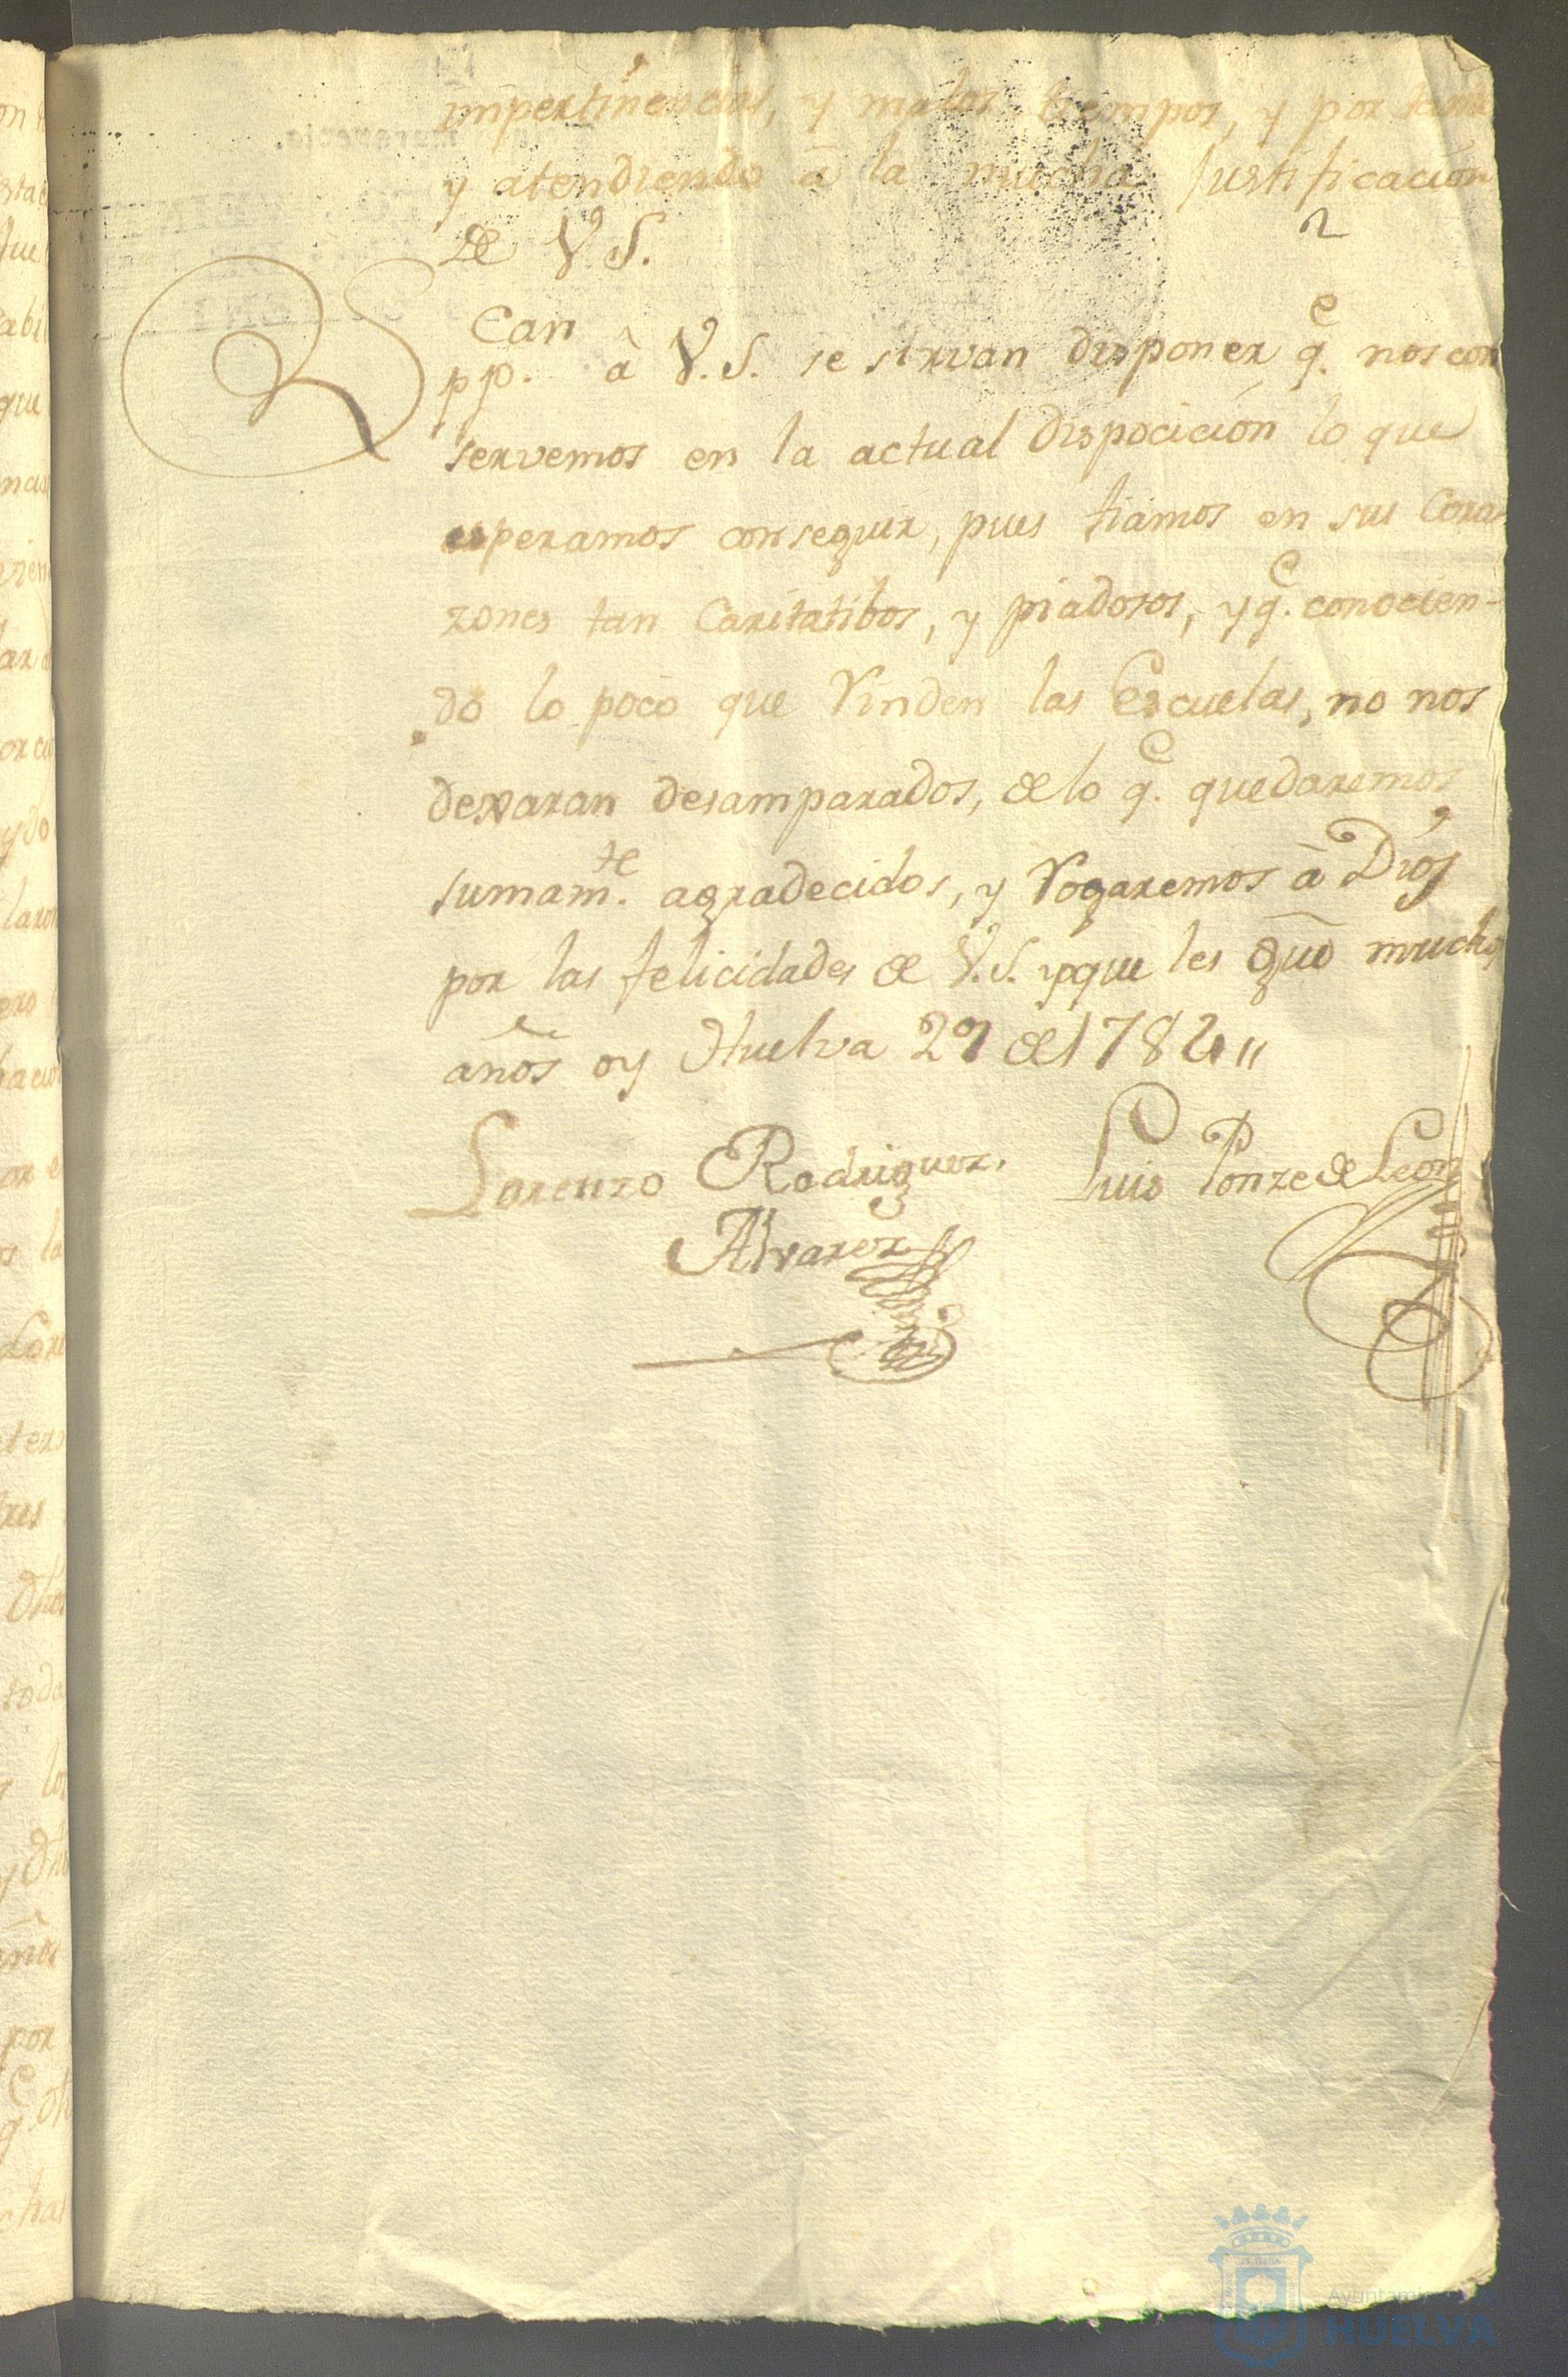 impertinencias, y malos tiempos, y por tanto
y atendiendo â la mucha Justificacion
de V.S.
Sup.can â V.S. se sirvan disponer q.e nos con
servemos en la actual Dispocición lo que
esperamos conseguir, pues fiamos en sus Cora-
zones tan Caritatibos, y piadosos, y q.e conocien-
do lo poco que Rinden las Escuelas, no nos
dexaran desamparados, de lo q.e quedaremos
sumam.te agradecidos, y Rogaremos â Dios
por las felicidades de V.S. y que les gũe muchos
años oy Huelva 27 de 1782,,
Lorenzo Rodriguez. Luis Ponze de Leon
Alvarez
Ayuntamiento de
HUELVA